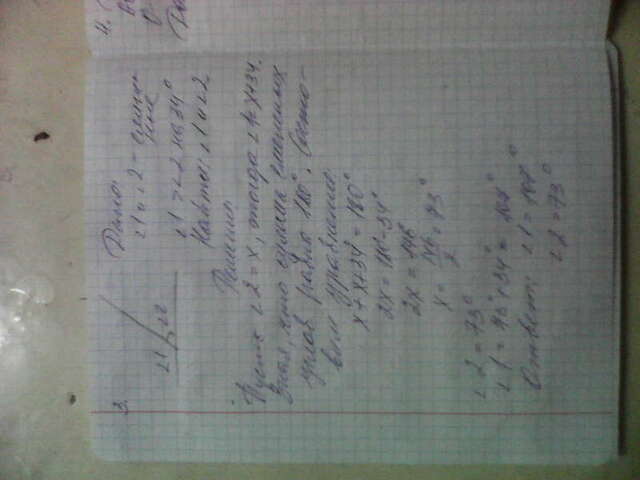 3.
Дано:
∠1 и ∠2 - смеж-
ные
∠1 > ∠2 на 34°
Найти: ∠1 и ∠2
∠1 ∠2
Решение:
Пусть ∠2 = x, тогда ∠1 = x+34.
Зная, что сумма смежных
углов равна 180°. Соста-
вим уравнение:
x + x+34° = 180°
2x = 180° - 34°
2x = 146°
x = 146/2 = 73°
∠2 = 73°
∠1 = 73° + 34° = 107°
Ответ: ∠1 = 107°
∠2 = 73°
4.